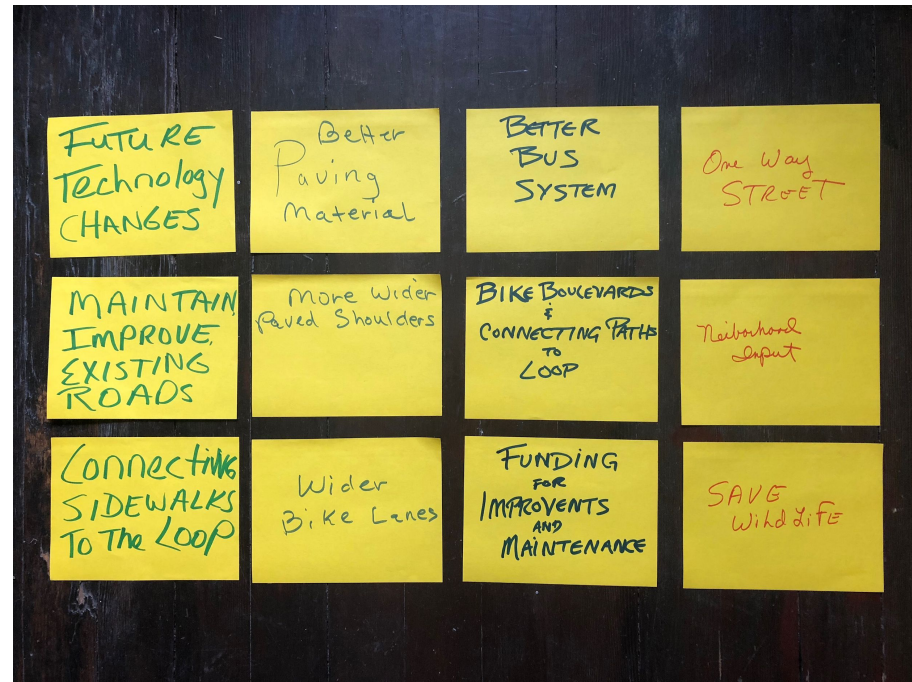 FUTURE
Technology
CHANGES
Better
Paving
Material
BETTER
BUS
SYSTEM
One Way
STREET
MAINTAIN,
IMPROVE,
EXISTING
ROADS
More Wider
paved Shoulders
BIKE BOULEVARDS
&
CONNECTING PATHS
TO
LOOP
Neiborhood
Input
Connecting
SIDEWALKS
To The LOOP
Wider
Bike Lanes
FUNDING
FOR
IMPROVENTS
AND
MAINTENANCE
SAVE
WildLiFE